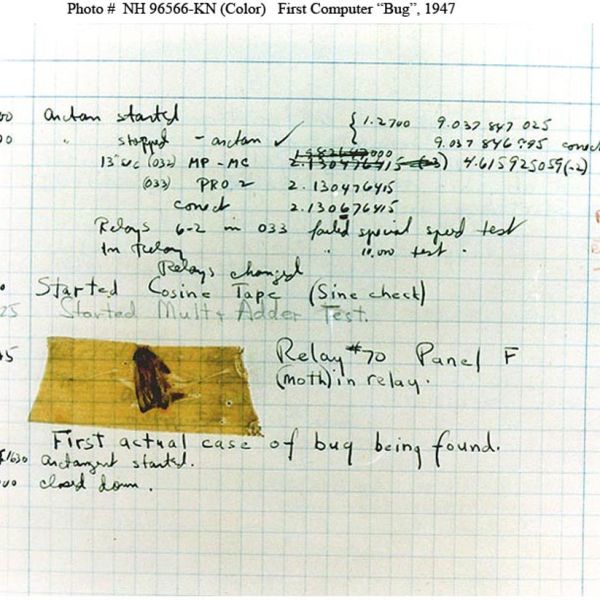 Photo # NH 96566-KN (Color) First Computer “Bug”, 1947
00 arctan started { 1.2700 9.037 847 025
00 " stopped - arctan ✓ 9.037 846 995 conect
13"uc (032) MP - MC 2.130476415 (-3) 4.615925059(-2)
(033) PRO 2 2.130476415
conect 2.130676415
Relays 6-2 in 033 failed special speed test
In Relay " 10.000 test .
Relays changed
0 Started Cosine Tape (Sine check)
25 Started Mult + Adder Test.
45 Relay #70 Panel F
(moth) in relay.
First actual case of bug being found.
1630 arctangent started.
00 closed down .